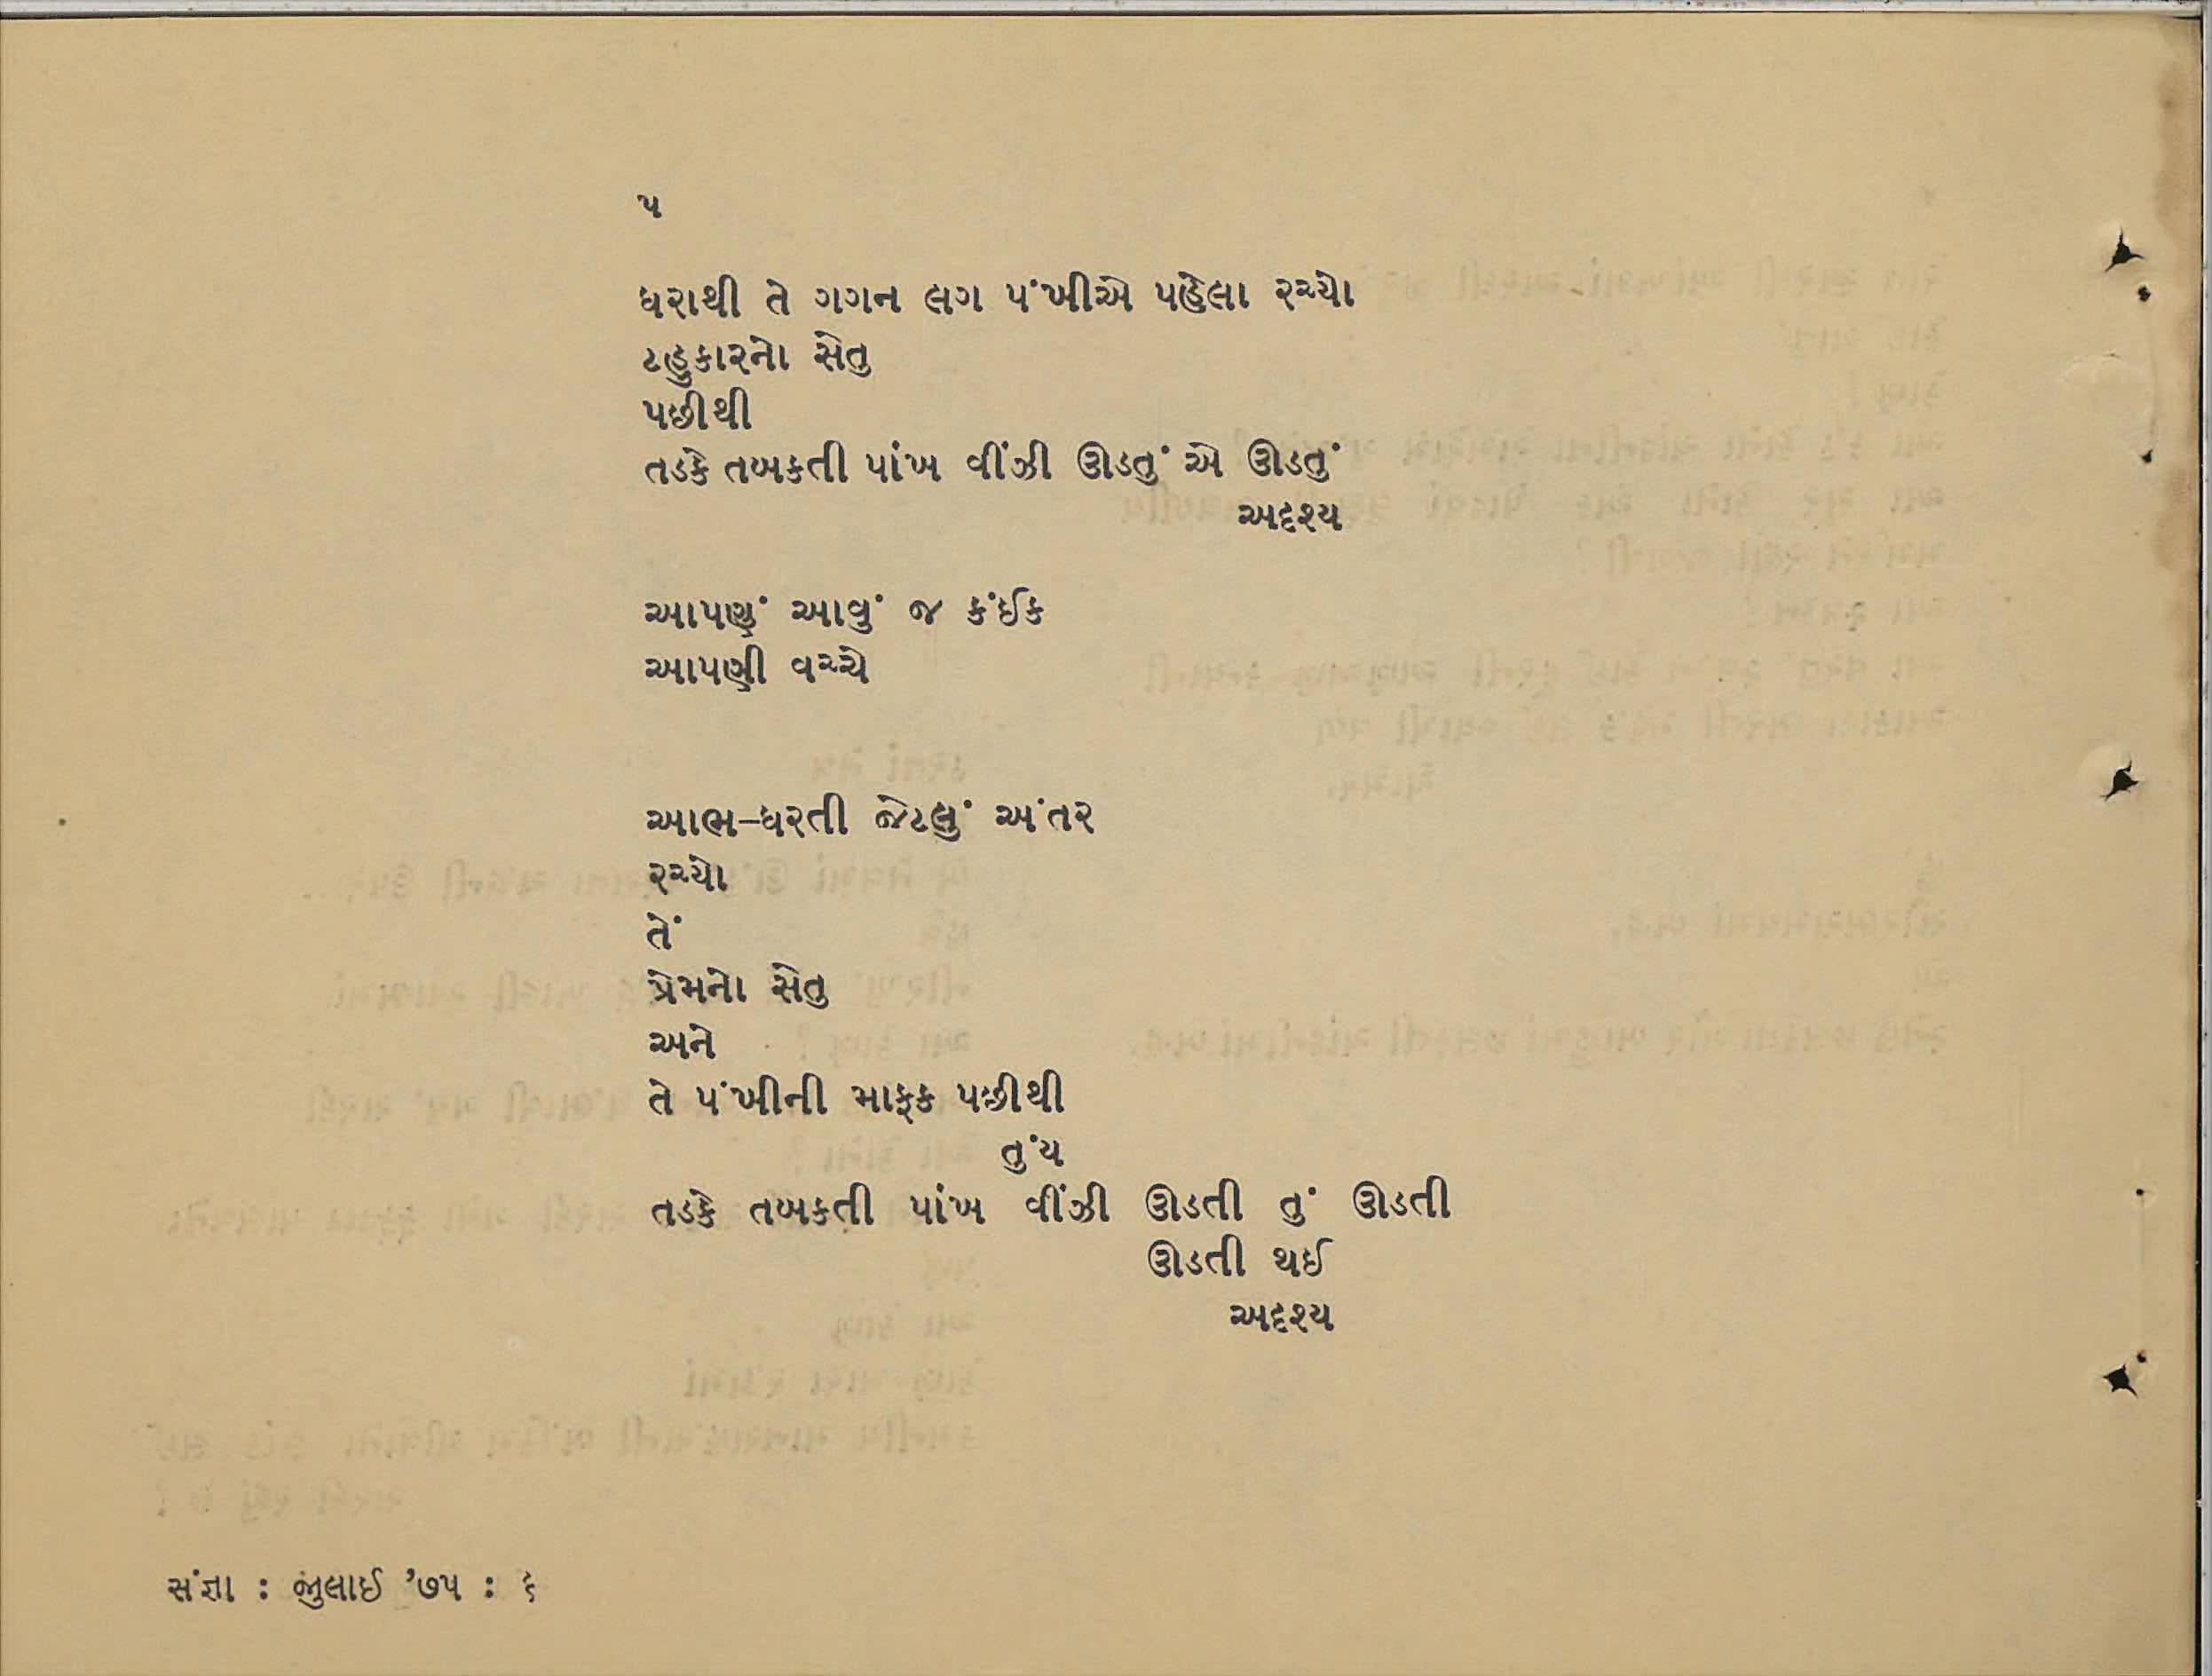 ૫
ધરાથી તે ગગન લગ પંખીએ પહેલા રચ્યો
ટહુકારનો સેતુ
પછીથી
તડકે તબકતી પાંખ વીંઝી ઊડતું એ ઊડતું
અદૃશ્ય
આપણું આવું જ કંઈક
આપણી વચ્ચે
આભ–ધરતી જેટલું અંતર
રચ્યો
તેં
પ્રેમનો સેતુ
અને
તે પંખીની માફક પછીથી
તુંય
તડકે તબકતી પાંખ વીંઝી ઊડતી તું ઊડતી
ઊડતી થઈ
અદૃશ્ય
સંજ્ઞા : જુલાઈ '૭૫ : ૬